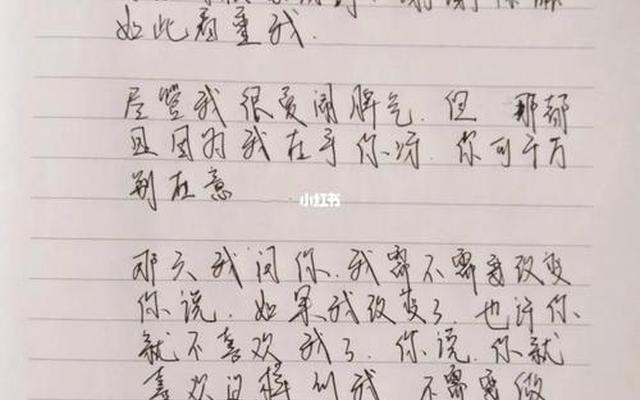 如此看重我.
尽管我很爱闹脾气.但 那都
且因为我在乎你呀.你可千万
别在意
小红书
那天我问你.我需不需要改变
你说.如果我改变了.也许你
就不喜欢我了.你说.你就
喜欢这样的我.不需要做